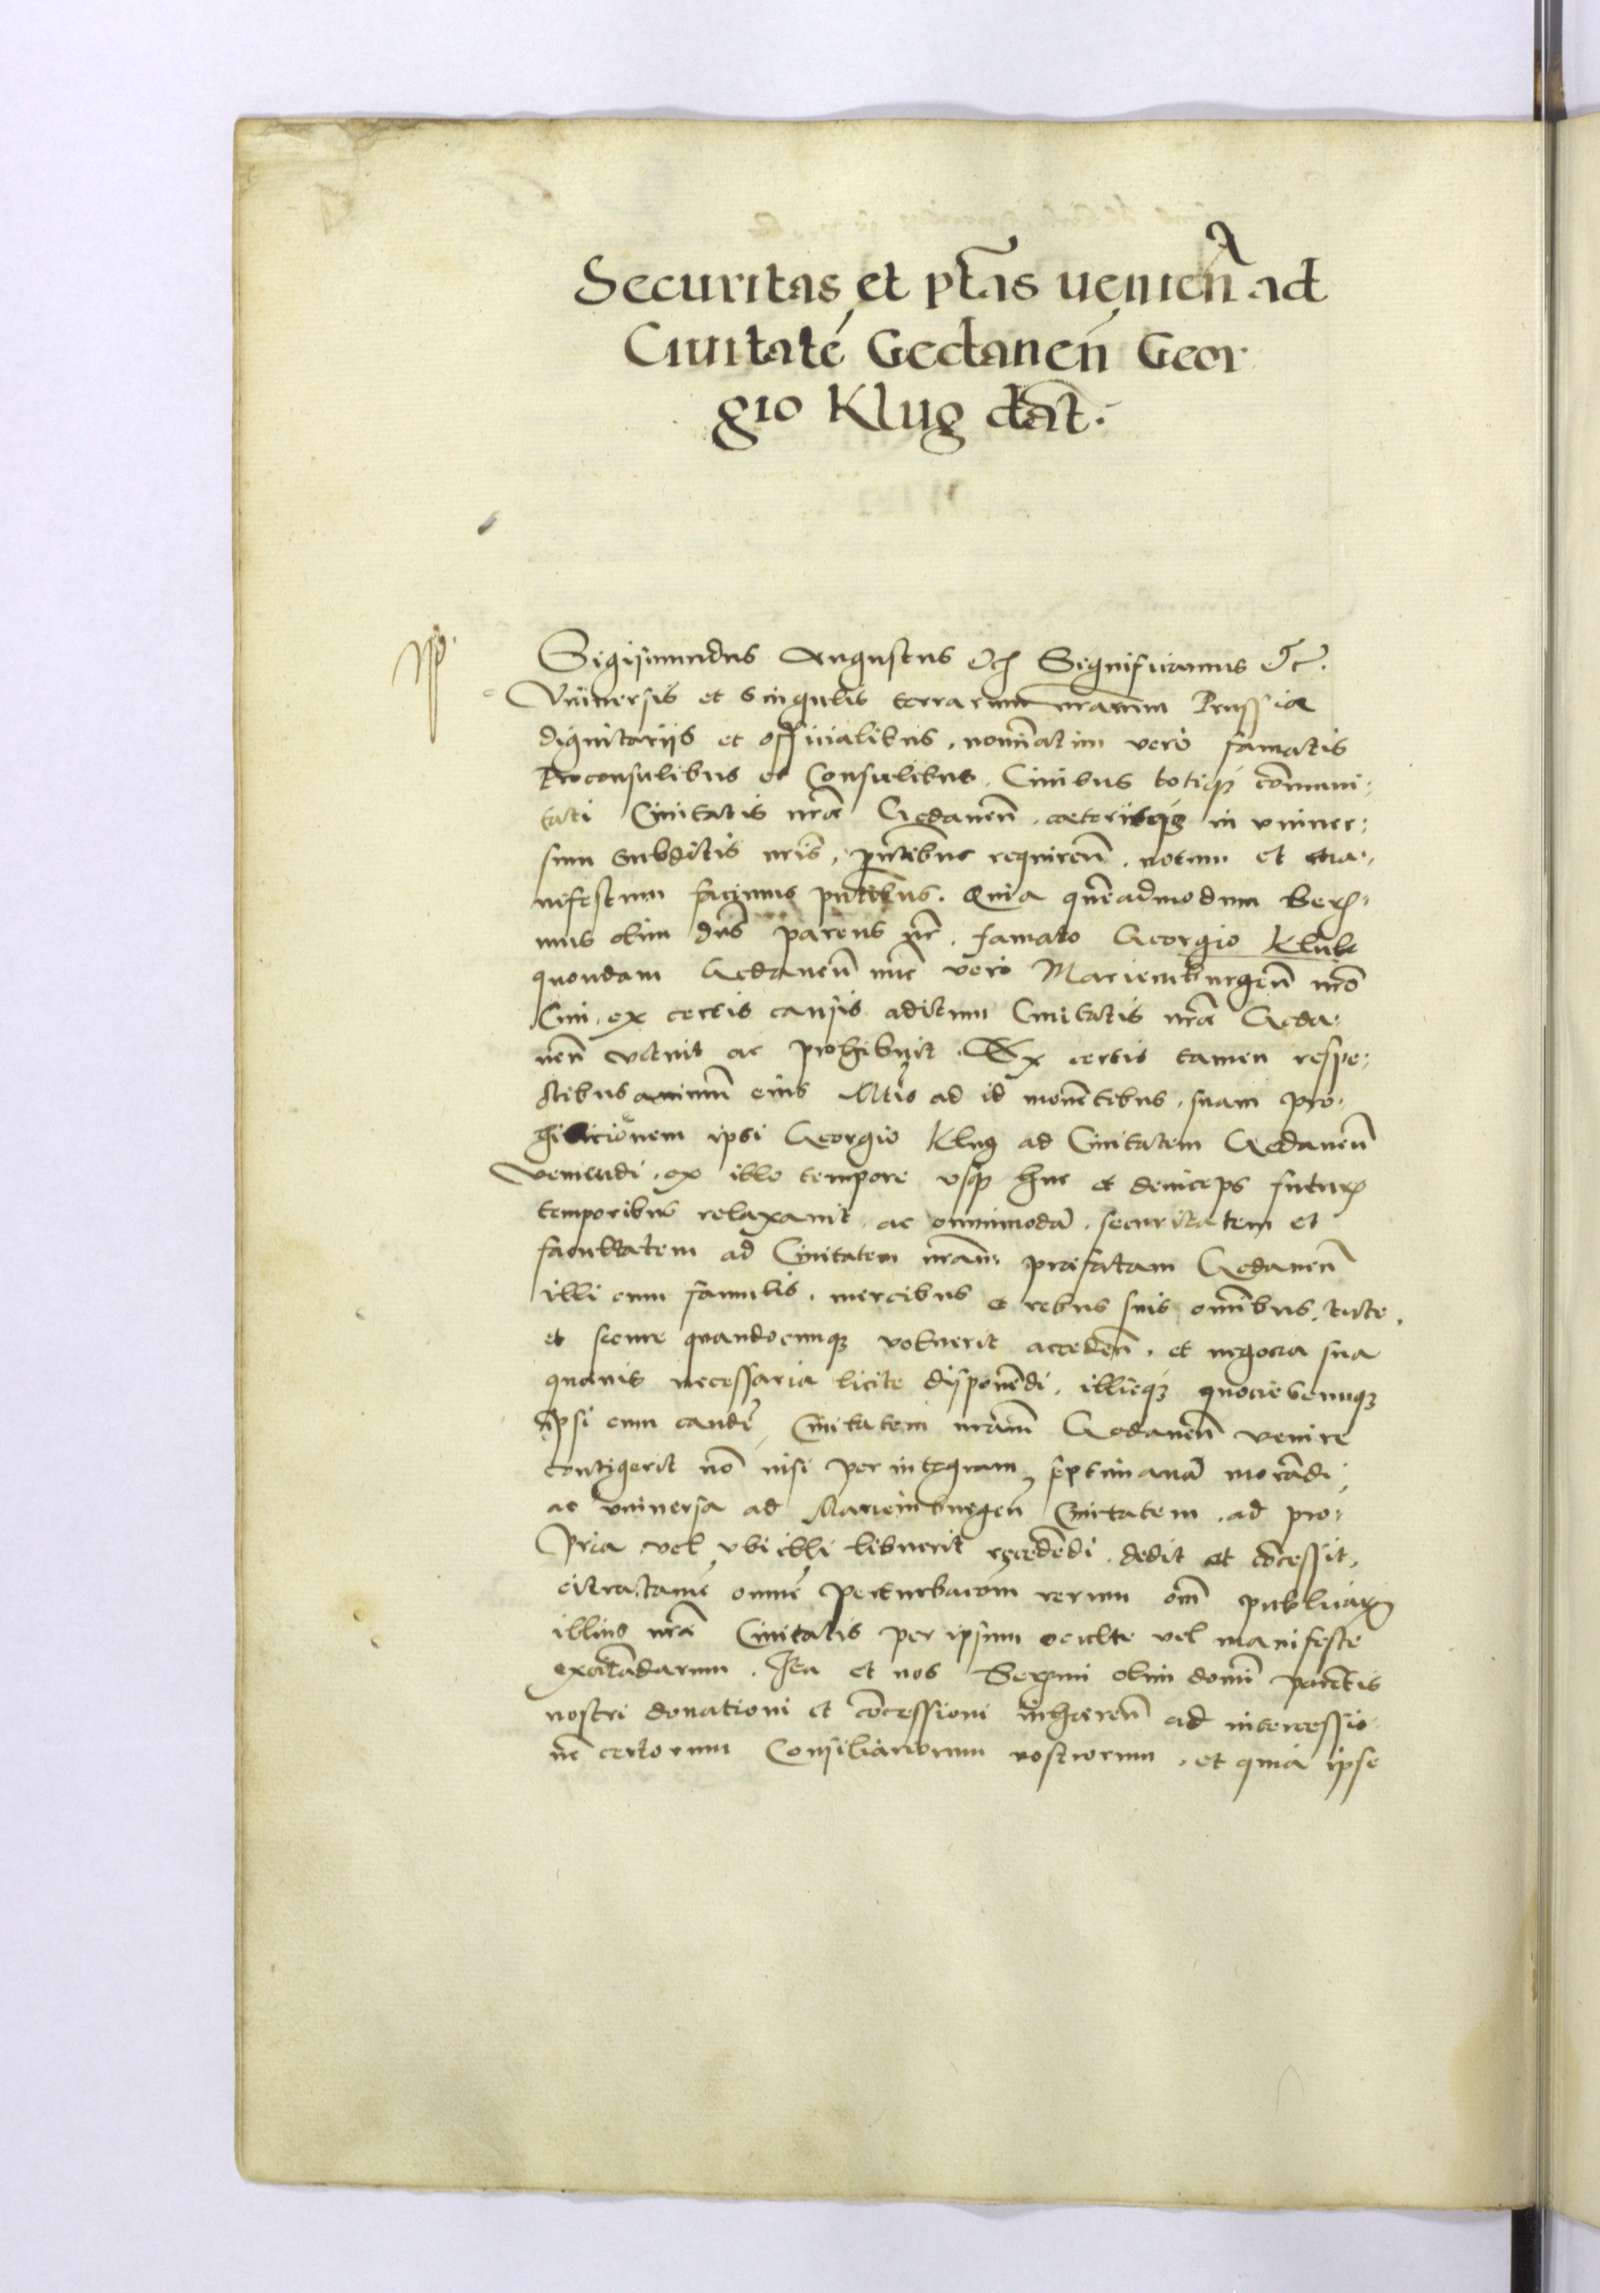 Securitas et ptās ueniēn ad
Ciuitatē Gedanen̄ Geor
gio Klug dat̄.
Sigismundus Augustus etc Significamus etc.
Vniuersis et singulis terrarum nrarum Prussiæ
dignitariis et officialibus, nominatim verò famatis
Proconsulibus et Consulibus, Ciuibus totiq̃ com̄uni-
tati Ciuitatis nrae Gedanen̄, cæterisq̃ in vniuer-
sum subditis nris, pñtibus requiren̄, notum et ma-
nifestum facimus pñtibus. Quia quēadmodum Ser-
mus olim dns parens nr, famato Georgio Klubt
quondam Gedanen̄ nūc verò Mariemburgen̄ nrō
Ciui, ex certis causis aditum Ciuitatis nrae Geda-
nen̄ vetuit ac prohibuit. Ex certis tamen respe-
ctibus animū eius Mtis ad id mouētibus, suam pro-
hibicionem ipsi Georgio Klug ad Ciuitatem Gedanen̄
veniendi, ex illo tempore vsq̃ huc et deinceps futuris
temporibus relaxauit, ac omnimodā, securitatem et
facultatem ad Ciuitatem nram præfatam Gedanen̄
illi cum famulis, mercibus et rebus suis om̄ibus, tute,
et secure quandocumq̃ voluerit acceden̄, et negocia sua
quæuis necessaria licite disponēdi, illicq̃ quociescumq̃
ipsi eum eandē Ciuitatem nram Gedanen̄ venire
contigerit nō nisi per integram septimanā morādi,
ac vniuersa ad Mariemburgen̄ Ciuitatem, ad pro-
pria vel vbi illi libuerit recedēdi, dedit et cōcessit,
citra tamē omnē perturbacōm rerum om̄ publicarum
illius nrae Ciuitatis per ipsum occulte vel manifeste
excitādarum. Ita et nos Sermi olim domi parētis
nostri donationi et cōcessioni inhæren̄ ad intercessio-
nē certorum Consiliariorum nostrorum, et quia ipse